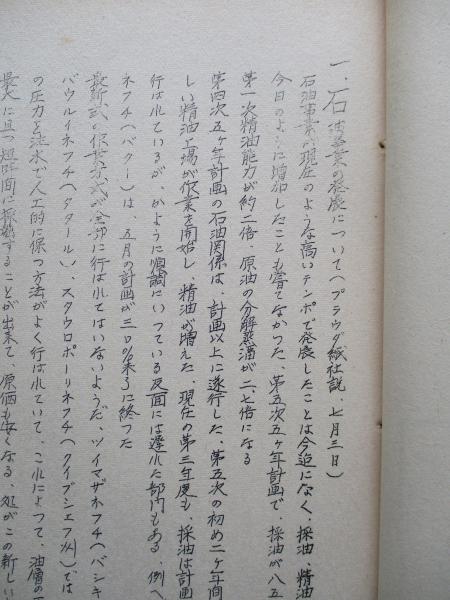 一、石油事業の発展について（プラウダ紙社説、七月三日）
石油事業が現在のような高いテンポで発展したことは今迄になく、採油、精油
今日のように増加したことも嘗てなかった、第五次五ヶ年計画で 採油が八五
第一次精油能力が約二倍、原油の分解蒸溜が二、七倍になる
第四次五ヶ年計画の石油関係は、計画以上に遂行した、第五次の初め二ヶ年間
しい精油工場が作業を開始し、精油が増えた、現在の第三年度も 採油は計画
行はれているが、かように順調にいつている反面には遅れた部門もある、例へ
ネフチ（バクー）は、五月の計画が三〇％未了に終つた
最新式の作業方式が全部に行はれてはいないようだ、ツイマザネフチ（バシキ
バウルイネフチ（タタール）、スタウロポーリネフチ（クイブシェフ州）では
の圧力を注水で人工的に保つ方法がよく行はれていて、これによつて、油層の
最大に且つ短時間に採油することが出来て 原価も安くなる、処がこの新しい